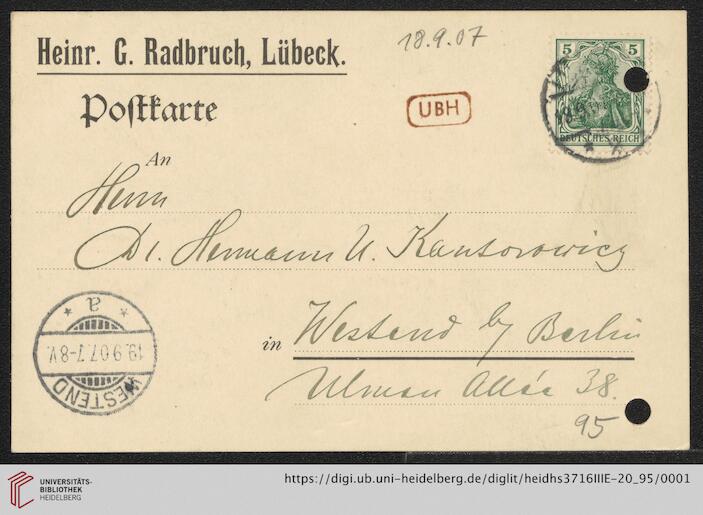 Heinr. G. Radbruch, Lübeck.
18.9.07
5 5
DEUTSCHES REICH
Postkarte
UBH
An
Herrn
Dr. Hermann U. Kantorowicz
in Westend b/ Berlin
Ulmen Allée 38.
95
a
19.9.07.7-8V.
WESTEND
UNIVERSITÄTS-
BIBLIOTHEK
HEIDELBERG
https://digi.ub.uni-heidelberg.de/diglit/heidhs3716IIIE-20_95/0001